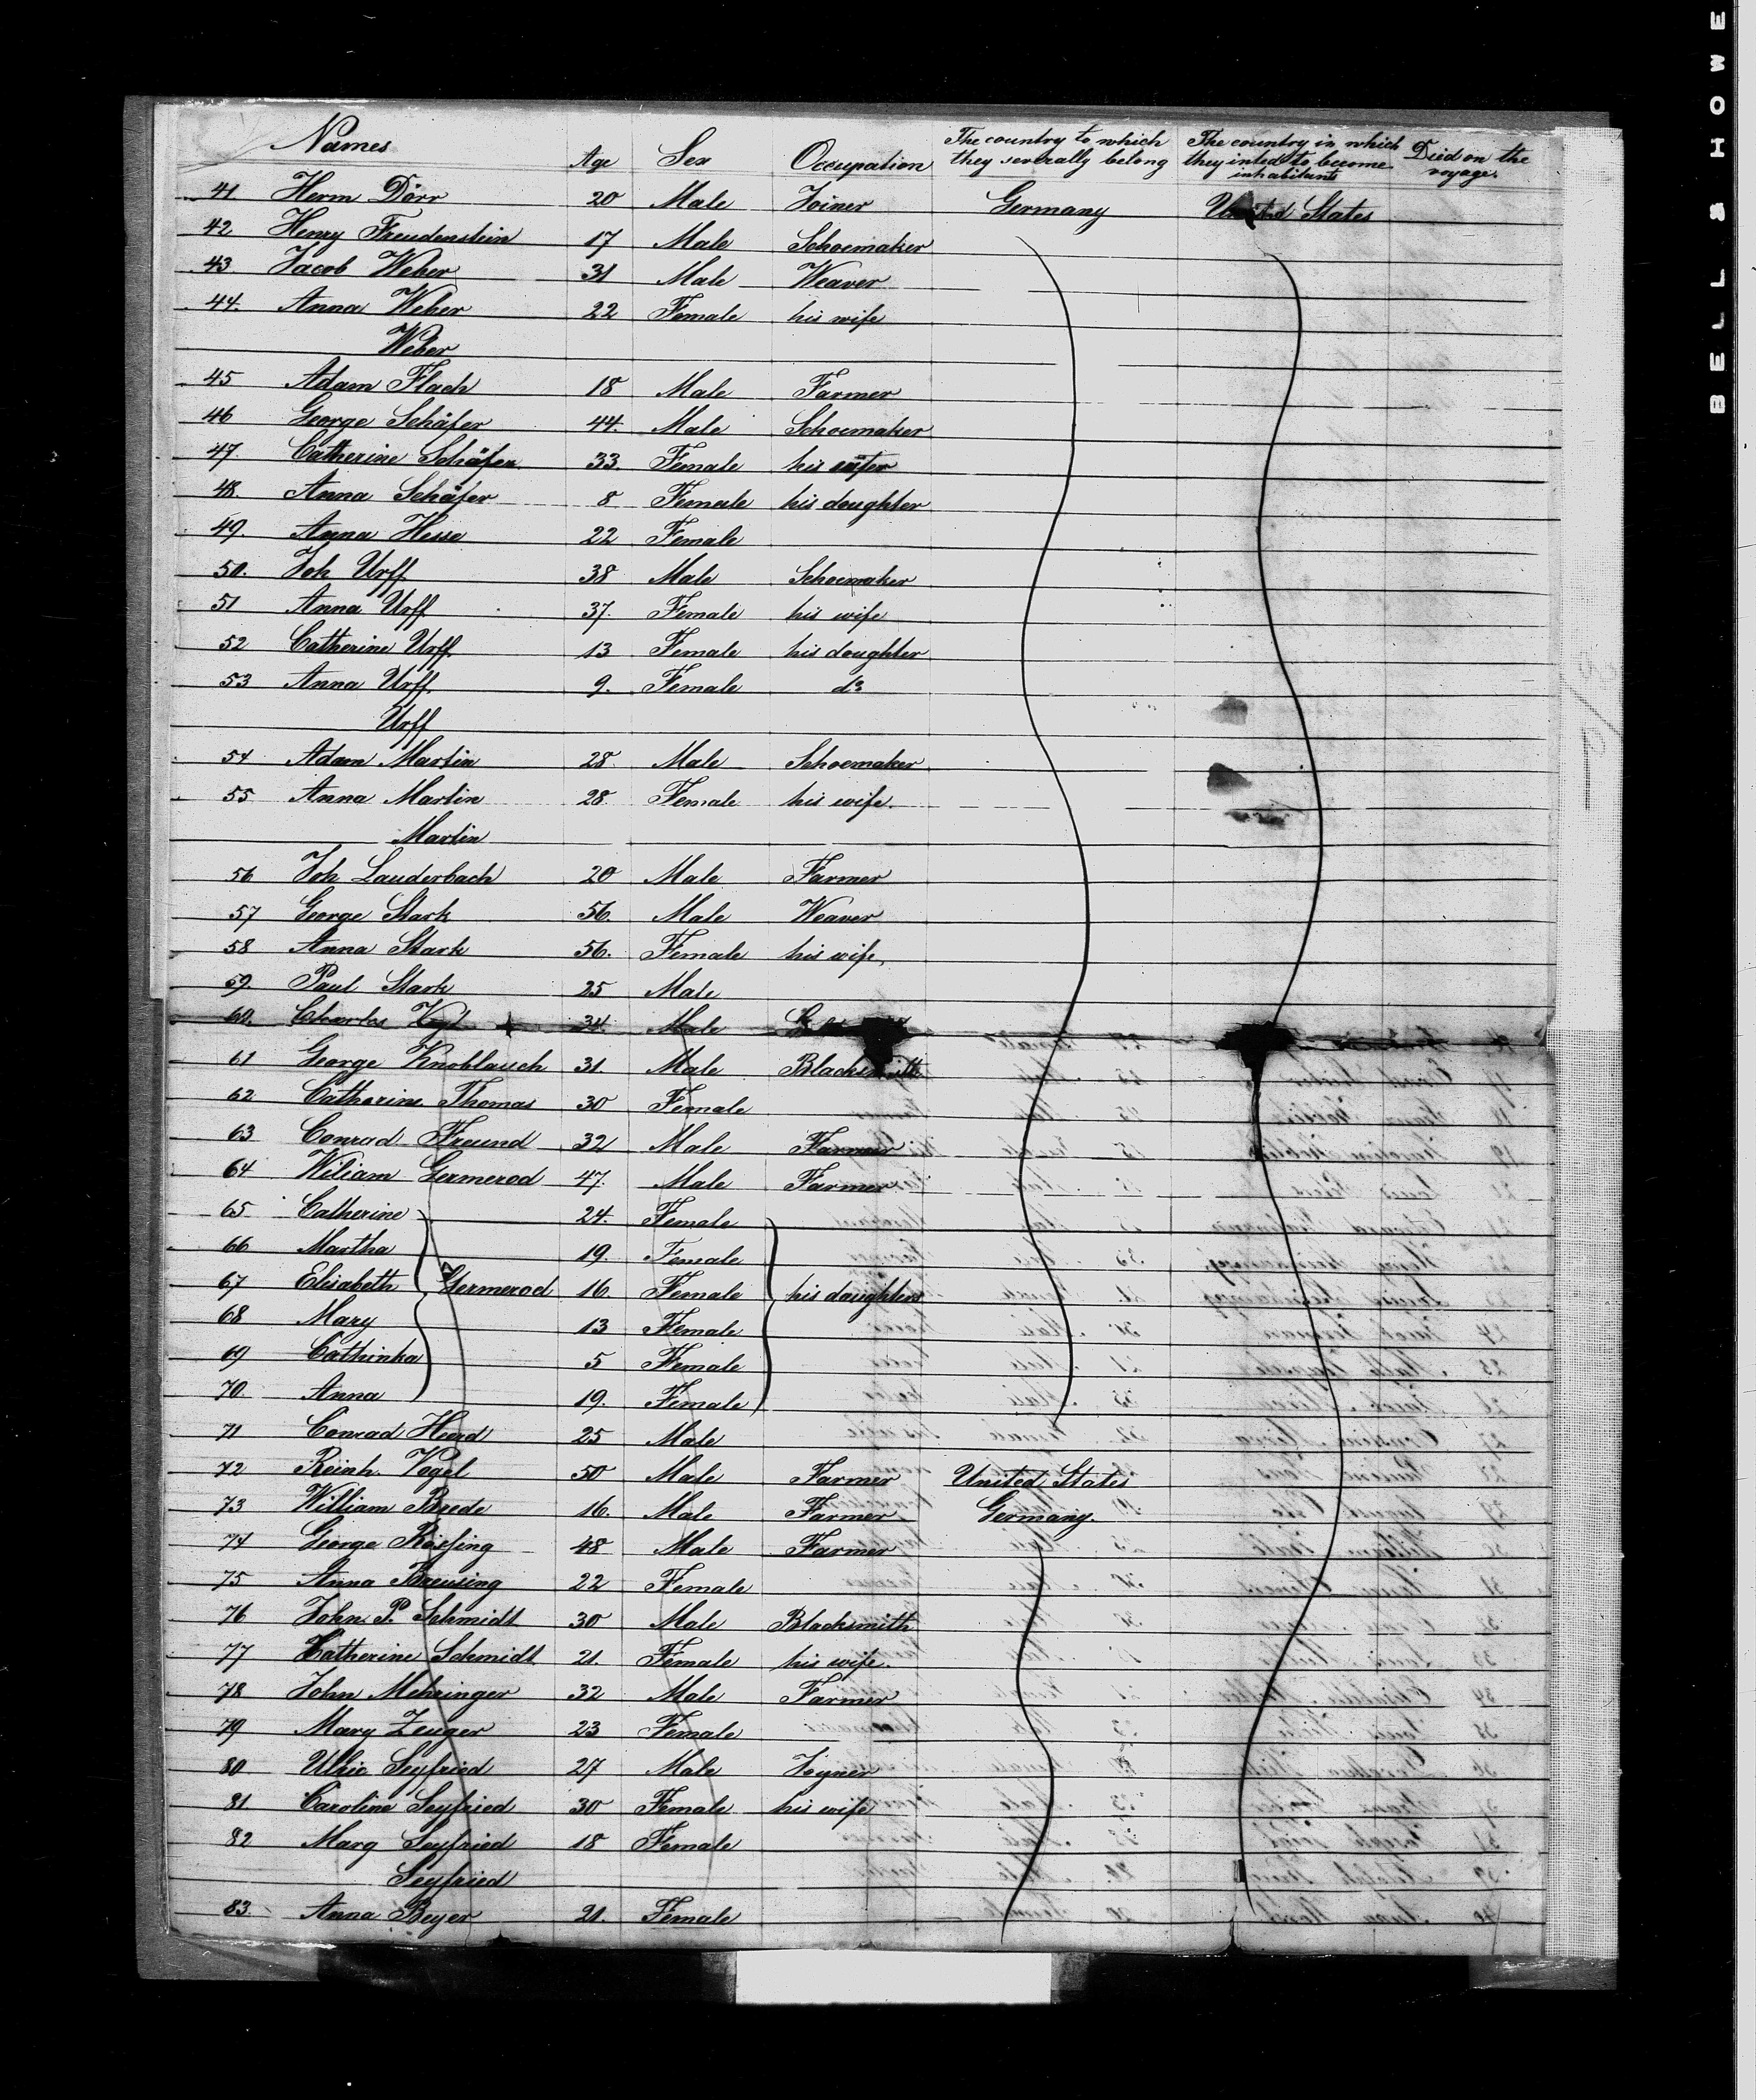 Names Age Sex Occupation The country to which they severally belong The country in which they inted to become inhabitants Died on the voyage.
41. Herm Dörr 20 Male Joiner Germany United States
42 Henry Freudenstein 17 Male Schoemaker
43 Jacob Weber 31 Male Weaver
44. Anna Weber 22 Female his wife
Weber
45 Adam Flach 18 Male Farmer
46 George Schäfer 44. Male Schoemaker
47. Catherine Schäfer 33. Female his
48. Anna Schäfer 8 Female his doughter
49. Anna Hesse 22 Female
50. Joh Urff 38 Male Schoemaker
51 Anna Urff 37. Female his wife
52 Catherine Urff 13 Female his doughter
53 Anna Urff 9. Female do
Urff
54 Adam Martin 28 Male Schoemaker
55 Anna Martin 28 Female his wife.
Martin
56 Joh Lauderbach 20 Male Farmer
57 George Stark 56. Male Weaver
58 Anna Stark 56. Female his wife
59. Paul Stark 25 Male
60. Charles 34. Male
61 George Knoblauch 31. Male Blacksmith
62 Catherine Thomas 30 Female
63 Conrad Freund 32 Male Farmer
64 Wiliam Germerod 47. Male Farmer
65 Catherine 24. Female
66 Martha 19. Female
67 Elisabeth Germerod 16 Female his daughters
68 Mary 13 Female
69 Cathinka 5 Female
70. Anna 19. Female
71 Conrad Heerd 25 Male
72 Reinh. Vogel 50 Male Farmer United States
73 William Brede 16. Male Farmer Germany.
74 George 48 Male Farmer
75 Anna Breusing 22 Female
76 John P. Schmidt 30 Male Blacksmith
77 Catherine Schmidt 21. Female his wife.
78 John Mehringer 32 Male Farmer
79 Mary Zeuger 23 Female
80 Ulric Seyfried 27 Male Joyner
81 Caroline Seyfried 30 Female his wife
82 Marg Seyfried 18 Female
Seyfried
83. Anna Beyer 21. Female
BELL & HOWE